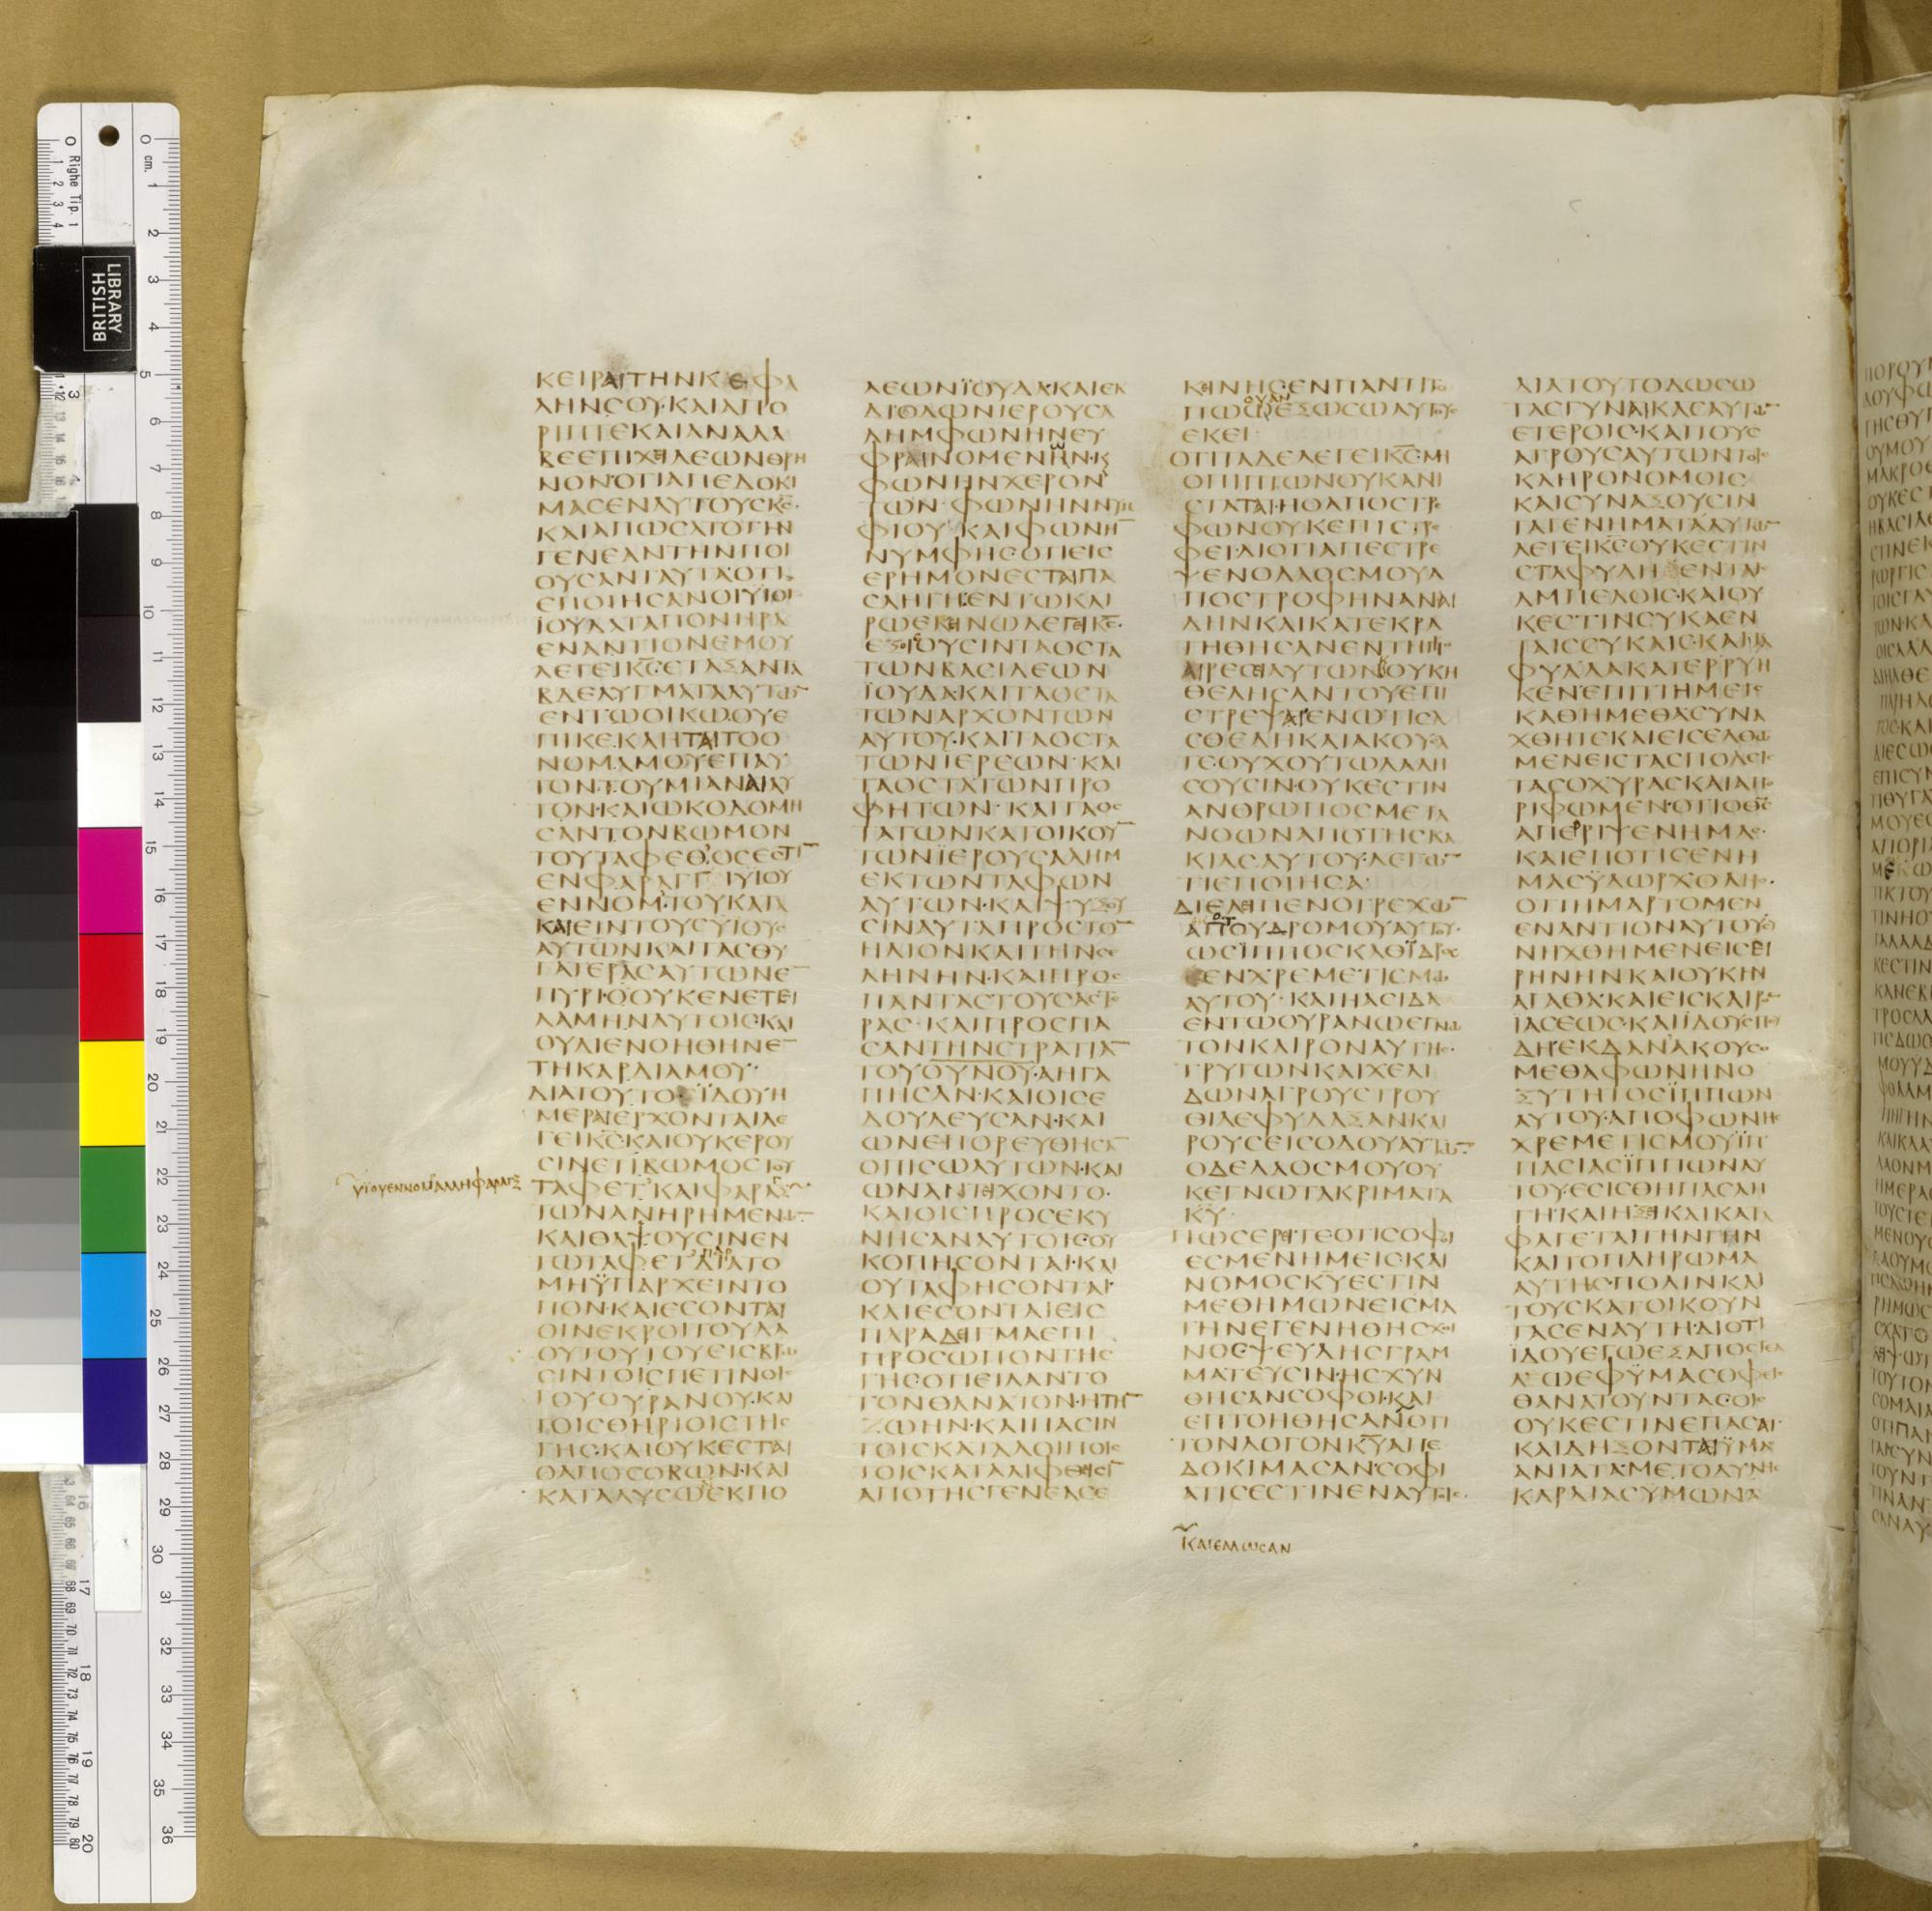 ΚΕΙΡΑΙΤΗΝΚΕΦΑ
ΛΗΝϹΟΥ·ΚΑΙΑΠΟ
ΡΙΠΤΕΚΑΙΑΝΑΛΑ
ΒΕΕΠΙΧΙΛΕΩΝΘΡΗ
ΝΟΝΟΤΙΑΠΕΔΟΚΙ
ΜΑϹΕΝΑΥΤΟΥϹΚ̅Ϲ̅·
ΚΑΙΑΠΩϹΑΤΟΤΗΝ
ΓΕΝΕΑΝΤΗΝΠΟΙ
ΟΥϹΑΝΤΑΥΤΑ·ΟΤΙ
ΕΠΟΙΗϹΑΝΟΙΥΙΟΙ
ΙΟΥΔΑΤΑΠΟΝΗΡΑ
ΕΝΑΝΤΙΟΝΕΜΟΥ
ΛΕΓΕΙΚ̅Ϲ̅ΕΤΑΞΑΝΤΑ
ΒΔΕΛΥΓΜΑΤΑΑΥΤΩ̅
ΕΝΤΩΟΙΚΩΟΥΕ
ΠΙΚΕΚΛΗΤΑΙΤΟΟ
ΝΟΜΑΜΟΥΕΠΑΥ
ΤΟΝΤΟΥΜΙΑΝΑΙΑΥ
ΤΟΝ·ΚΑΙΩΚΟΔΟΜΗ
ϹΑΝΤΟΝΒΩΜΟΝ
ΤΟΥΤΑΦΕΘΟϹΕϹΤΙ̅
ΕΝΦΑΡΑΓΓΙΥΙΟΥ
ΕΝΝΟΜ·ΤΟΥΚΑΤΑ
ΚΑΙΕΙΝΤΟΥϹΥΙΟΥϹ
ΑΥΤΩΝΚΑΙΤΑϹΘΥ
ΓΑΤΕΡΑϹΑΥΤΩΝΕ̅
ΠΥΡΙ·ΟΟΥΚΕΝΕΤΕΙ
ΛΑΜΗΝΑΥΤΟΙϹΚΑΙ
ΟΥΔΙΕΝΟΗΘΗΝΕ̅
ΤΗΚΑΡΔΙΑΜΟΥ·
ΔΙΑΤΟΥΤΟΪΔΟΥΗ
ΜΕΡΑΙΕΡΧΟΝΤΑΙΛΕ
ΓΕΙΚ̅Ϲ̅ΚΑΙΟΥΚΕΡΟΥ
ϹΙΝΕΤΙΒΩΜΟϹΤΟΥ
ΤΑΦΕΤ᾽ΚΑΙΦΑΡΑΓΞ
ΥΙΟΥΕΝΝΟΜΑΛΛΗΦΑΡΑΓΞ
ΤΩΝΑΝΗΡΗΜΕΝΩ̅
ΚΑΙΘΑΨΟΥϹΙΝΕΝ
ΤΩΤΑΦΕΤ᾽ΔΙΑΤΟ
ΜΗΫΠΑΡΧΕΙΝΤΟ
ΠΟΝ·ΚΑΙΕϹΟΝΤΑΙ
ΟΙΝΕΚΡΟΙΤΟΥΛΑ
ΟΥΤΟΥΤΟΥΕΙϹΒΡΩ
ϹΙΝΤΟΙϹΠΕΤΙΝΟΙϹ
ΤΟΥΟΥΡΑΝΟΥ·ΚΑΙ
ΤΟΙϹΘΗΡΙΟΙϹΤΗϹ
ΓΗϹ·ΚΑΙΟΥΚΕϹΤΑΙ
ΟΑΠΟϹΟΒΩΝ·ΚΑΙ
ΚΑΤΑΛΥϹΩΕΚΠΟ
ΛΕΩΝΪΟΥΔΑ·ΚΑΙΕΚ
ΔΙΟΔΩΝΙΕΡΟΥϹΑ
ΛΗΜΦΩΝΗΝΕΥ
ΦΡΑΙΝΟΜΕΝΩΝ·Κ
ΦΩΝΗΝΧΕΡΟΝ
ΤΩΝ·ΦΩΝΗΝΝΥΜ
ΦΙΟΥ·ΚΑΙΦΩΝΗ̅
ΝΥΜΦΗϹΟΤΙΕΙϹ
ΕΡΗΜΟΝΕϹΤΑΙΠΑ
ϹΑΗΓΗ·ΕΝΤΩΚΑΙ
ΡΩΕΚΙΝΩΛΕΓΕΙΚ̅Ϲ̅·
ΕΞΟΙΟΥϹΙΝΤΑΟϹΤΑ
ΤΩΝΒΑϹΙΛΕΩΝ
ΪΟΥΔΑ·ΚΑΙΤΑΟϹΤΑ
ΤΩΝΑΡΧΟΝΤΩΝ
ΑΥΤΟΥ·ΚΑΙΤΑΟϹΤΑ
ΤΩΝΙΕΡΕΩΝ·ΚΑΙ
ΤΑΟϹΤΑΤΩΝΠΡΟ
ΦΗΤΩΝ·ΚΑΙΤΑΟϹ
ΤΑΤΩΝΚΑΤΟΙΚΟΥ̅
ΤΩΝΪΕΡΟΥϹΑΛΗΜ
ΕΚΤΩΝΤΑΦΩΝ
ΑΥΤΩΝ·ΚΑΙΨΥΞΟΥ
ϹΙΝΑΥΤΑΠΡΟϹΤΟ̅
ΗΛΙΟΝΚΑΙΤΗΝϹΕ
ΛΗΝΗΝ·ΚΑΙΠΡΟϹ
ΠΑΝΤΑϹΤΟΥϹΑϹΤΕ
ΡΑϹ·ΚΑΙΠΡΟϹΠΑ
ϹΑΝΤΗΝϹΤΡΑΤΙΑ̅
ΤΟΥΟ̅Υ̅Ν̅Ο̅Υ̅·ΑΗΓΑ
ΠΗϹΑΝ·ΚΑΙΟΙϹΕ
ΔΟΥΛΕΥϹΑΝ·ΚΑΙ
ΩΝΕΠΟΡΕΥΘΗϹΑ̅
ΟΠΙϹΩΑΥΤΩΝ·ΚΑΙ
ΩΝΑΝΤΙΧΟΝΤΟ·
ΚΑΙΟΙϹΠΡΟϹΕΚΥ
ΝΗϹΑΝΑΥΤΟΙϹΟΥ
ΚΟΠΗϹΟΝΤΑΙ·ΚΑΙ
ΟΥΤΑΦΗϹΟΝΤΑΙ·
ΚΑΙΕϹΟΝΤΑΙΕΙϹ
ΠΑΡΑΔΙΓΜΑΕΠΙ
ΠΡΟϹΩΠΟΝΤΗϹ
ΓΗϹΟΤΙΕΙΛΑΝΤΟ
ΤΟΝΘΑΝΑΤΟΝ·ΗΤΗ̅
ΖΩΗΝ·ΚΑΙΠΑϹΙΝ
ΤΟΙϹΚΑΤΑΛΟΙΠΟΙϹ
ΤΟΙϹΚΑΤΑΛΙΦΘΕΙϹΙ̅
ΑΠΟΤΗϹΓΕΝΕΑϹΕ
ΚΙΝΗϹΕΝΠΑΝΤΙΤΟ
ΠΩΩΕΞΩϹΩΑΥΤΟΥϹ
ΕΚΕΙ·
ΟΤΙΤΑΔΕΛΕΓΕΙΚ̅Ϲ̅·ΜΗ
ΟΠΙΠΤΩΝΟΥΚΑΝΙ
ϹΤΑΤΑΙ·ΗΟΑΠΟϹΤΡΕ
ΦΩΝΟΥΚΕΠΙϹΤΡΕ
ΦΕΙ·ΔΙΟΤΙΑΠΕϹΤΡΕ
ΨΕΝΟΛΑΟϹΜΟΥΑ
ΠΟϹΤΡΟΦΗΝΑΝΑΙ
ΔΗΝΚΑΙΚΑΤΕΚΡΑ
ΤΗΘΗϹΑΝΕΝΤΗΠΡΟ
ΑΙΡΕϹΙΑΥΤΩΝΟΥΚΗ
ΘΕΛΗϹΑΝΤΟΥΕΠΙ
ϹΤΡΕΨΑΙ·ΕΝΩΤΙϹΑ
ϹΘΕΔΗΚΑΙΑΚΟΥϹΑ
ΤΕΟΥΧΟΥΤΩΛΑΛΗ
ϹΟΥϹΙΝ·ΟΥΚΕϹΤΙΝ
ΑΝΘΡΩΠΟϹΜΕΤΑ
ΝΟΩΝΑΠΟΤΗϹΚΑ
ΚΙΑϹΑΥΤΟΥ·ΛΕΓΩ̅
ΤΙΕΠΟΙΗϹΑ·
ΔΙΕΛΙΠΕΝΟΤΡΕΧΩ̅
ΑΠΟΥΔΡΟΜΟΥΑΥΤΟΥ·
ΩϹΪΠΠΟϹΚΑΘΪΔΡΟϹ
ΕΝΧΡΕΜΕΤΙϹΜΩ
ΑΥΤΟΥ·ΚΑΙΗΑϹΙΔΑ
ΕΝΤΩΟΥΡΑΝΩΕΓΝΩ
ΤΟΝΚΑΙΡΟΝΑΥΤΗϹ·
ΤΡΥΓΩΝΚΑΙΧΕΛΙ
ΔΩΝΑΓΡΟΥϹΤΡΟΥ
ΘΙΑΕΦΥΛΑΞΑΝΚΑΙ
ΡΟΥϹΕΙϹΟΔΟΥΑΥΤΩ̅
ΟΔΕΛΑΟϹΜΟΥΟΥ
ΚΕΓΝΩΤΑΚΡΙΜΑΤΑ
Κ̅Υ̅
ΠΩϹΕΡΕΙΤΕΟΤΙϹΟΦΟΙ
ΕϹΜΕΝΗΜΕΙϹ·ΚΑΙ
ΝΟΜΟϹΚ̅Υ̅ΕϹΤΙΝ
ΜΕΘΗΜΩΝΕΙϹΜΑ
ΤΗΝΕΓΕΝΗΘΗϹΧΟΙ
ΝΟϹΨΕΥΔΗϹΓΡΑΜ
ΜΑΤΕΥϹΙΝ·ΗϹΧΥΝ
ΘΗϹΑΝϹΟΦΟΙ·ΚΑΙ
ΕΠΤΟΗΘΗϹΑΝΟΤΙ
ΤΟΝΛΟΓΟΝΚ̅Υ̅ΑΠΕ
ΔΟΚΙΜΑϹΑΝ·ϹΟΦΙ
ΑΤΙϹΕϹΤΙΝΕΝΑΥΤΟΙϹ·
ΚΑΙΕΑΛΩϹΑΝ
ΔΙΑΤΟΥΤΟΔΩϹΩ
ΤΑϹΓΥΝΑΙΚΑϹΑΥΤΩ̅
ΕΤΕΡΟΙϹ·ΚΑΙΤΟΥϹ
ΑΓΡΟΥϹΑΥΤΩΝΤΟΙϹ
ΚΛΗΡΟΝΟΜΟΙϹ
ΚΑΙϹΥΝΑΞΟΥϹΙΝ
ΤΑΓΕΝΗΜΑΤΑΑΥΤΩ̅
ΛΕΓΕΙΚ̅Ϲ̅ΟΥΚΕϹΤΙΝ
ϹΤΑΦΥΛΗΕΝΤΑΙϹ
ΑΜΠΕΛΟΙϹ·ΚΑΙΟΥ
ΚΕϹΤΙΝϹΥΚΑΕΝ
ΤΑΙϹϹΥΚΑΙϹ·ΚΑΙΤΑ
ΦΥΛΛΑΚΑΤΕΡΡΥΗ
ΚΕΝ·ΕΠΙΤΙΗΜΕΙϹ
ΚΑΘΗΜΕΘΑϹΥΝΑ
ΧΘΗΤΕΚΑΙΕΙϹΕΛΘΩ
ΜΕΝΕΙϹΤΑϹΠΟΛΕΙϹ
ΤΑϹΟΧΥΡΑϹΚΑΙΑΠΟ
ΡΙΦΩΜΕΝ·ΟΤΙΟΘ̅Ϲ̅
ΑΠΕΡΙΨΕΝΗΜΑϹ·
ΚΑΙΕΠΟΤΙϹΕΝΗ
ΜΑϹΫΔΩΡΧΟΛΗϹ·
ΟΤΙΗΜΑΡΤΟΜΕΝ
ΕΝΑΝΤΙΟΝΑΥΤΟΥ·
ΝΗΧΘΗΜΕΝΕΙϹΕΙ
ΡΗΝΗΝΚΑΙΟΥΚΗΝ
ΑΓΑΘΑ·ΚΑΙΕΙϹΚΑΙΡΟ̅
ΙΑϹΕΩϹ·ΚΑΙΪΔΟΥϹΠΟΥ
ΔΗ·ΕΚΔΑΝ᾽ΑΚΟΥϹΟ
ΜΕΘΑΦΩΝΗΝΟ
ΞΥΤΗΤΟϹΪΠΠΩΝ
ΑΥΤΟΥ·ΑΠΟΦΩΝΗϹ
ΧΡΕΜΕΤΙϹΜΟΥΪΠ
ΠΑϹΙΑϹΪΠΠΩΝΑΥ
ΤΟΥ·ΕϹΙϹΘΗΠΑϹΑΗ
ΓΗ·ΚΑΙΗΞΙΚΑΙΚΑΤΑ
ΦΑΓΕΤΑΙΤΗΝΓΗΝ
ΚΑΙΤΟΠΛΗΡΩΜΑ
ΑΥΤΗϹ·ΠΟΛΙΝΚΑΙ
ΤΟΥϹΚΑΤΟΙΚΟΥΝ
ΤΑϹΕΝΑΥΤΗ·ΔΙΟΤΙ
ΪΔΟΥΕΓΩΕΞΑΠΟϹΤΕΛ
ΛΩΕΦΫΜΑϹΟΦΕΙϹ
ΘΑΝΑΤΟΥΝΤΑϹΟΙϹ
ΟΥΚΕϹΤΙΝΕΠΑϹΑΙ·
ΚΑΙΔΗΞΟΝΤΑΙΫΜΑϹ
ΑΝΙΑΤΑ·ΜΕΤΟΔΥΝΗϹ
ΚΑΡΔΙΑϹΥΜΩΝΑ